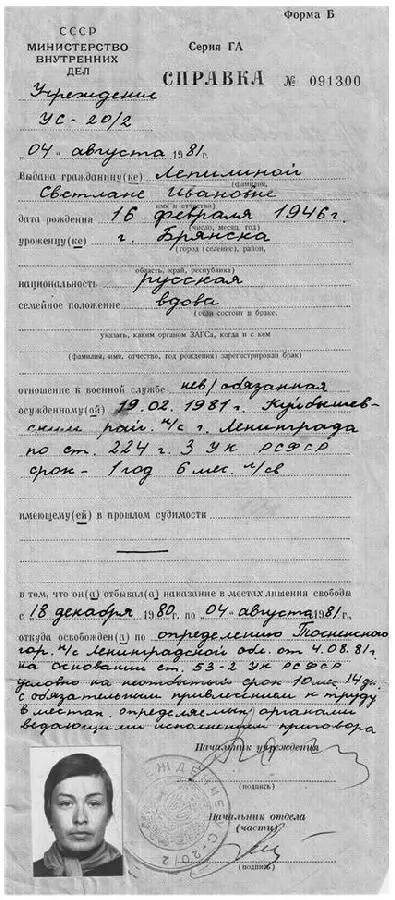 Форма Б
СССР
МИНИСТЕРСТВО
ВНУТРЕННИХ
ДЕЛ
Серия ГА
СПРАВКА № 091300
Учреждение
УС-20/2
04 августа 1981г.
Выдана гражданину(ке) Лепилиной
(фамилия,
Светлане Ивановне
имя и отчество)
дата рождения 16 февраля 1946г.
(число, месяц, год)
уроженцу(ке) г. Брянска
(город (селение), район,
область, край, республика)
национальность русская
семейное положение вдова
(если состоит в браке,
указать, каким органом ЗАГСа, когда и с кем
(фамилия, имя, отчество, год рождения) зарегистрирован брак)
отношение к военной службе нев/обязанная
осужденному(ой) 19.02.1981г. Куйбышев-
ским рай. н/с г. Ленинграда
по ст. 224 г. 3 УК РСФСР
срок - 1 год 6 мес. л/св
имеющему(ей) в прошлом судимости
—
в том, что он(а) отбывал(а) наказание в местах лишения свободы
с 18 декабря 1980 по 04 августа 1981г.
откуда освобожден(а) по определению Тосненского
гор. н/с Ленинградской обл. от 4.08.81г
на основании ст. 53-2 УК РСФСР
условно на неотбытый срок 10 мес 14 дн.
с обязательным привлечением к труду
в местах, определяемых органами
ведающими исполнением приговора
Начальник учреждения
(подпись)
Начальник отдела
(части)
(подпись)